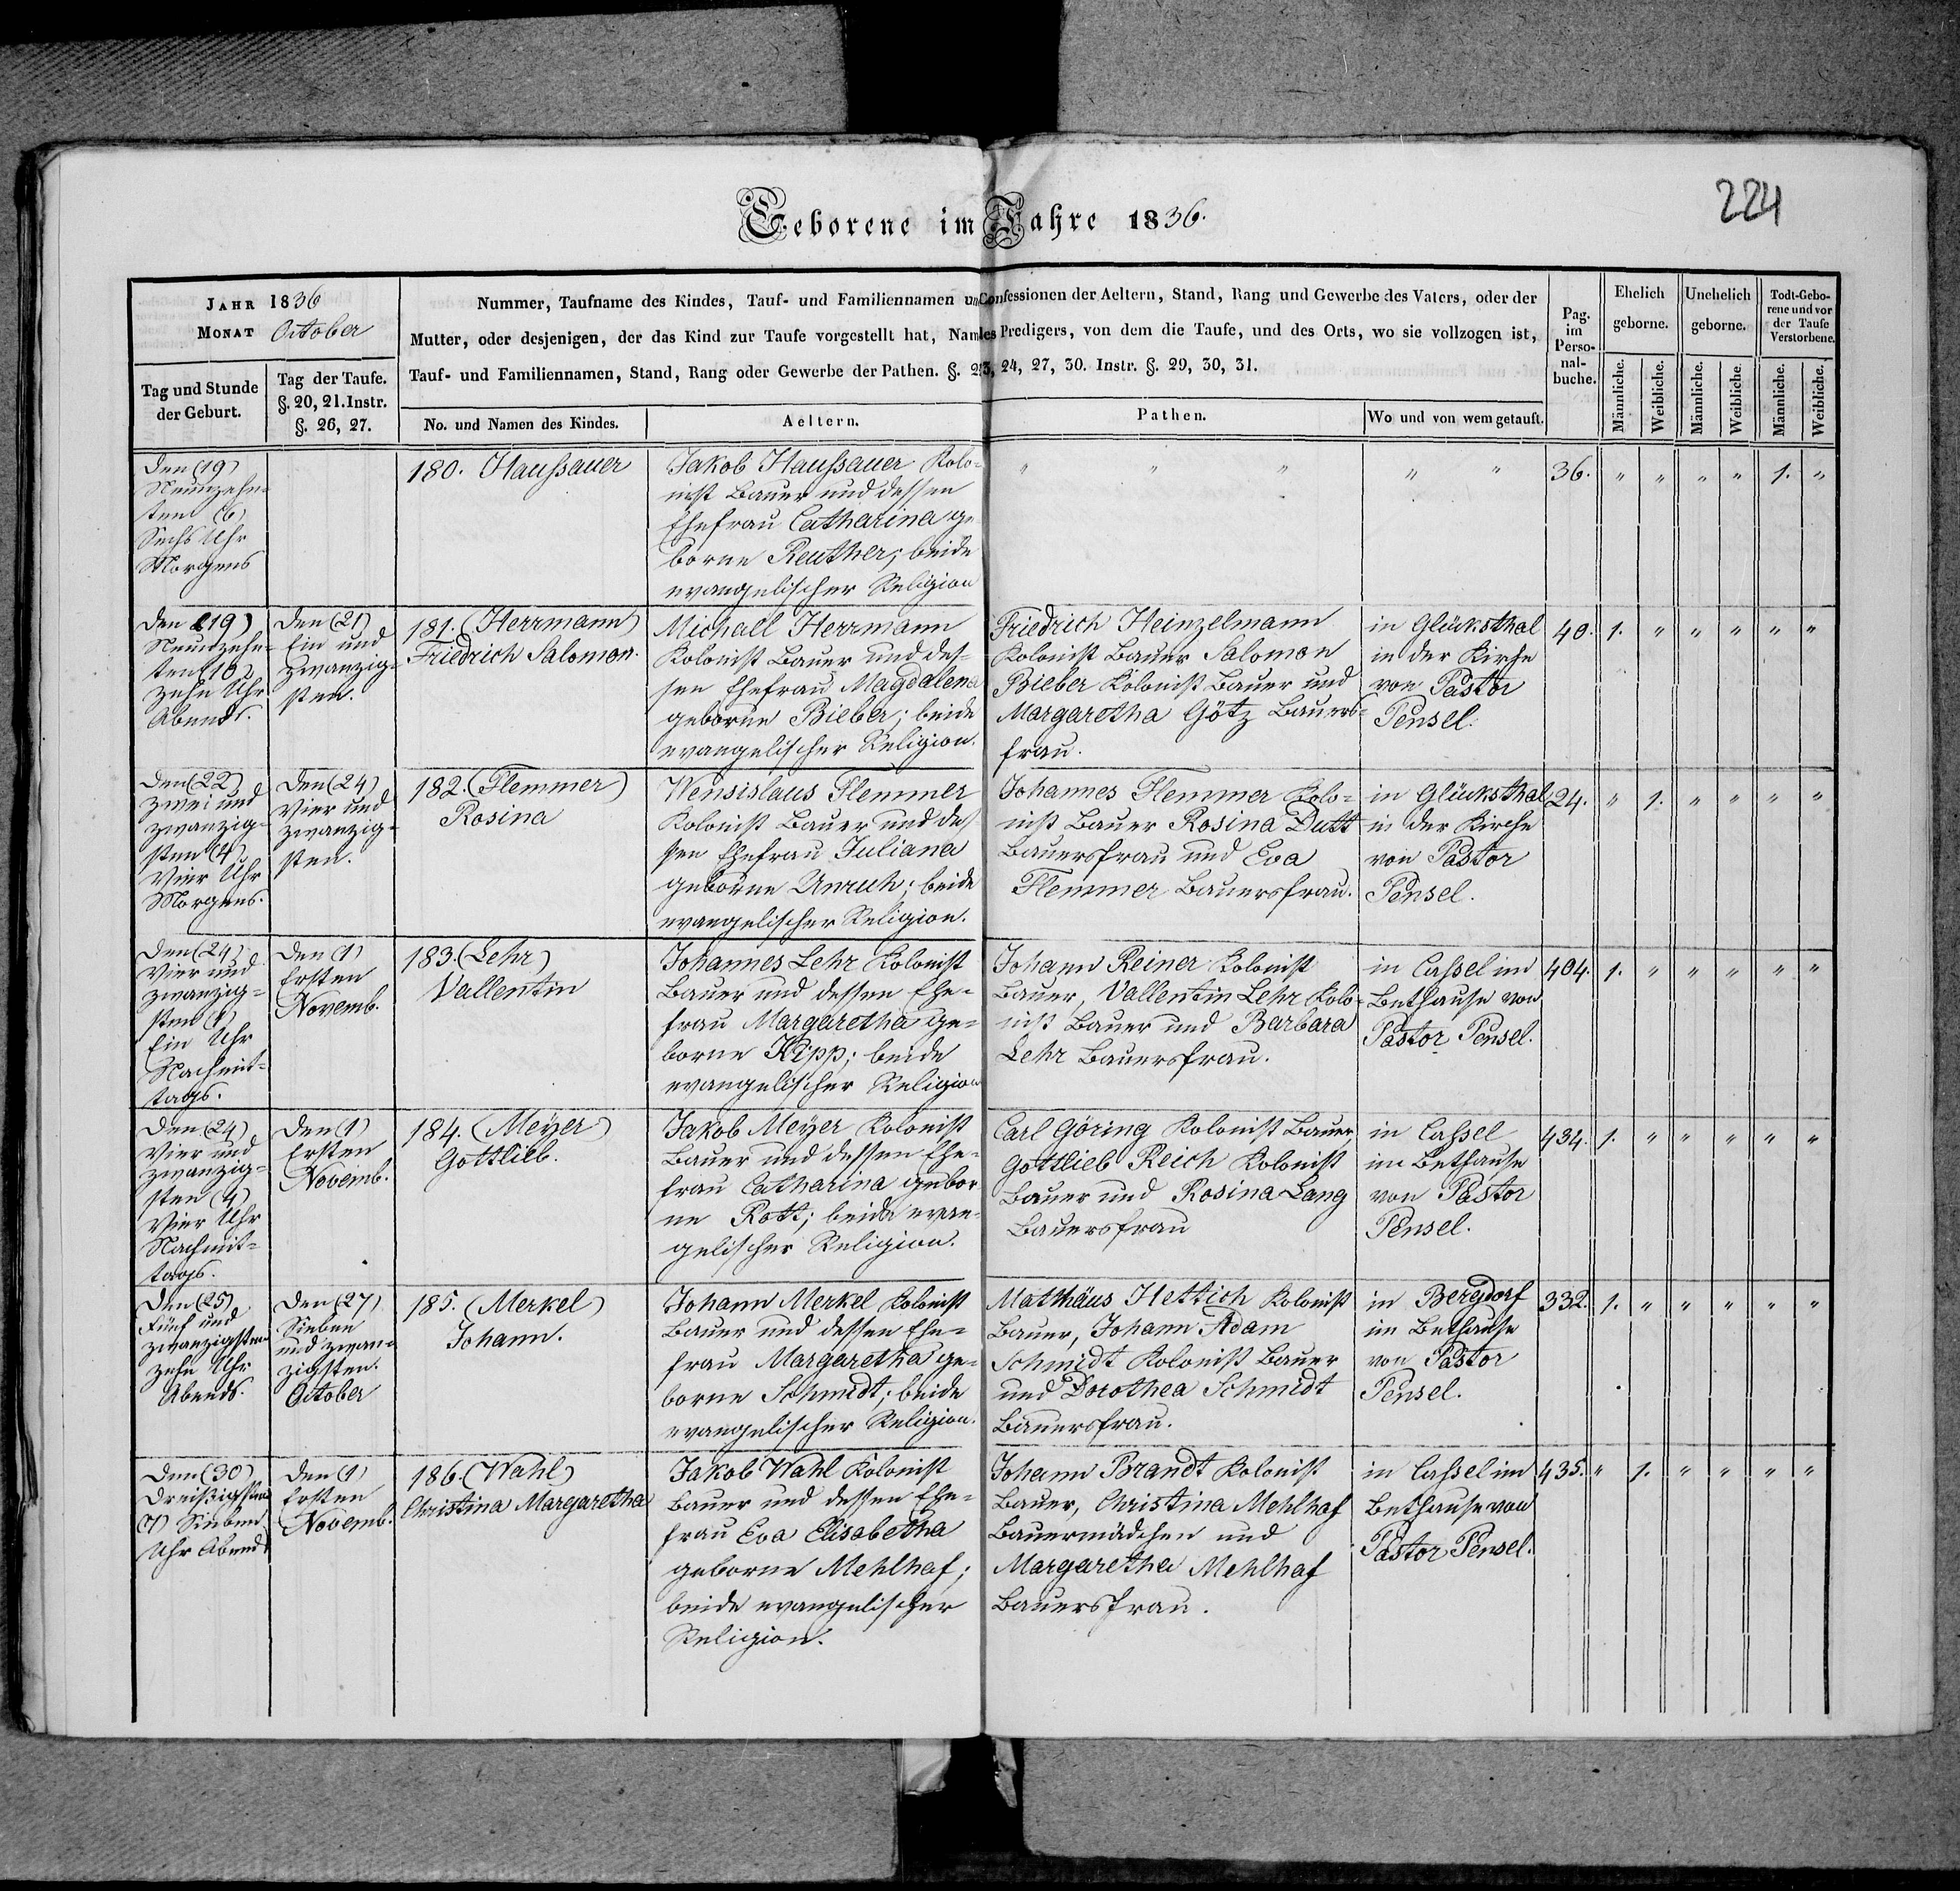 224
Geborene im Jahre 1836.
JAHR 1836
MONAT October
Nummer, Taufname des Kindes, Tauf- und Familiennamen un Confessionen der Aeltern, Stand, Rang und Gewerbe des Vaters, oder der
Mutter, oder desjenigen, der das Kind zur Taufe vorgestellt hat, Nam des Predigers, von dem die Taufe, und des Orts, wo sie vollzogen ist,
Tauf- und Familiennamen, Stand, Rang oder Gewerbe der Pathen. §. 23, 24, 27, 30. Instr. §. 29, 30, 31.
Tag und Stunde
der Geburt.
Tag der Taufe.
§. 20, 21. Instr.
§. 26, 27.
No. und Namen des Kindes.
Aeltern.
Pathen.
Wo und von wem getauft.
Pag.
im
Perso-
nal-
buche.
Ehelich
geborne.
Unehelich
geborne.
Todt-Gebo-
rene und vor
der Taufe
Verstorbene.
Männliche.
Weibliche.
Männliche.
Weibliche.
Männliche.
Weibliche.
Den (19)
Neunzehn-
ten (6)
Sechs Uhr
Morgens
180. Haußauer
Jakob Haußauer Kolo-
nist Bauer und dessen
Ehefrau Catharina ge
borne Reuther; beide
evangelischer Religion
" " " " " 36. " " " " 1. "
Den (19)
Neunzehn-
ten (10)
Zehn Uhr
Abends.
Den (21)
Ein und
zwanzig-
sten.
181. (Herrmann)
Friedrich Salomon.
Michael Herrmann
Kolonist Bauer und des-
sen Ehefrau Magdalena
geborne Bieber; beide
evangelischer Religion.
Friedrich Heinzelmann
Kolonist Bauer Salomon
Bieber Kolonist Bauer und
Margaretha Götz Bauers-
frau.
in Glücksthal
in der Kirche
von Pastor
Pensel.
40. 1. " " " " "
Den (22)
Zwei und
zwanzig-
sten (4)
Vier Uhr
Morgens.
Den (24)
Vier und
zwanzig-
sten.
182. (Flemmer)
Rosina
Wensislaus Flemmer
Kolonist Bauer und des
sen Ehefrau Juliana
geborne Unruh; beide
evangelischer Religion.
Johannes Flemmer Kolo-
nist Bauer Rosina Dutt
Bauersfrau und Eva
Flemmer Bauersfrau.
in Glücksthal
in der Kirche
von Pastor
Pensel.
24. " 1. " " " "
Den (24)
Vier und
zwanzig-
sten (1)
Ein Uhr
Nachmit-
tags.
Den (1)
Ersten
Novemb.
183. (Lehr)
Vallentin
Johannes Lehr Kolonist
Bauer und dessen Ehe-
frau Margaretha ge-
borne Kipp; beide
evangelischer Religion
Johann Reiner Kolonist
Bauer, Vallentin Lehr Kolo-
nist Bauer und Barbara
Lehr Bauersfrau.
in Caßel im
Bethause von
Pastor Pensel.
404. 1. " " " " "
Den (24)
Vier und
zwanzig-
sten (4)
Vier Uhr
Nachmit-
tags.
Den (1)
Ersten
Novemb.
184. (Meyer)
Gottlieb.
Jakob Meyer Kolonist
Bauer und dessen Ehe-
frau Catharina gebor
ne Rott; beide evan-
gelischer Religion.
Carl Göring Kolonist Bauer,
Gottlieb Reich Kolonist
Bauer und Rosina Lang
Bauersfrau
in Caßel
im Bethause
von Pastor
Pensel.
434. 1. " " " " "
Den (25)
Fünf und
zwanzigsten
Zehn Uhr
Abends.
Den (27)
Sieben
und zwan-
zigsten.
October
185. (Merkel)
Johann.
Johann Merkel Kolonist
Bauer und dessen Ehe-
frau Margaretha ge-
borne Schmidt; beide
evangelischer Religion.
Matthäus Hettich Kolonist
Bauer, Johann Adam
Schmidt Kolonist Bauer
und Dorothea Schmidt
Bauersfrau.
in Bergdorf
im Bethause
von Pastor
Pensel.
332. 1. " " " " "
Den (30)
Dreißigsten
(7) Sieben
Uhr Abends
Den (1)
Ersten
Novemb.
186. (Wahl)
Christina Margaretha
Jakob Wahl Kolonist
Bauer und dessen Ehe-
frau Eva Elisabetha
geborne Mehlhaf;
beide evangelischer
Religion.
Johann Brandt Kolonist
Bauer, Christina Mehlhaf
Bauermädchen und
Margaretha Mehlhaf
Bauersfrau.
in Caßel im
Bethause von
Pastor Pensel.
435. " 1. " " " "